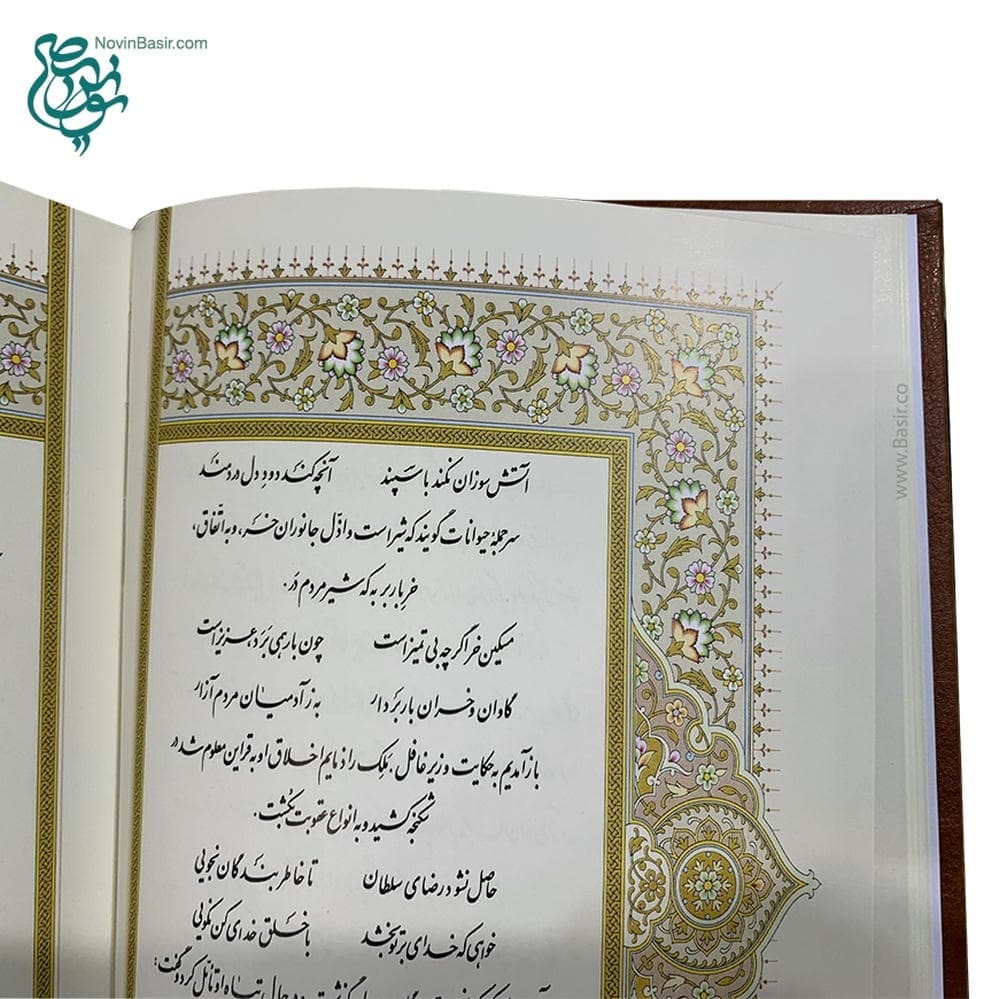 NovinBasir.com
نوین بصیر
www.Basir.co
آتش سوزان نکند با سپند آنچه کند دود دل دردمند
سر جملهٔ حیوانات گویند که شیر است و اذلّ جانوران خر، و به اتّفاق،
خر باربر به که شیر مردم در.
مسکین خر اگر چه بی تمیز است چون بار همی برد، عزیز است
گاوان و خران بار بردار به ز آدمیان مردم آزار
باز آمدیم به حکایت وزیر غافل، ملک را ذمایم اخلاق او به قراین معلوم شد در
شکنجه کشید و به انواع عقوبت بکشت.
حاصل نشود رضای سلطان تا خاطر بندگان نجویی
خواهی که خدای بر تو بخشد با خلق خدای کن نکویی
گذشت و در حال تباه او تأمّل کرد و گفت: